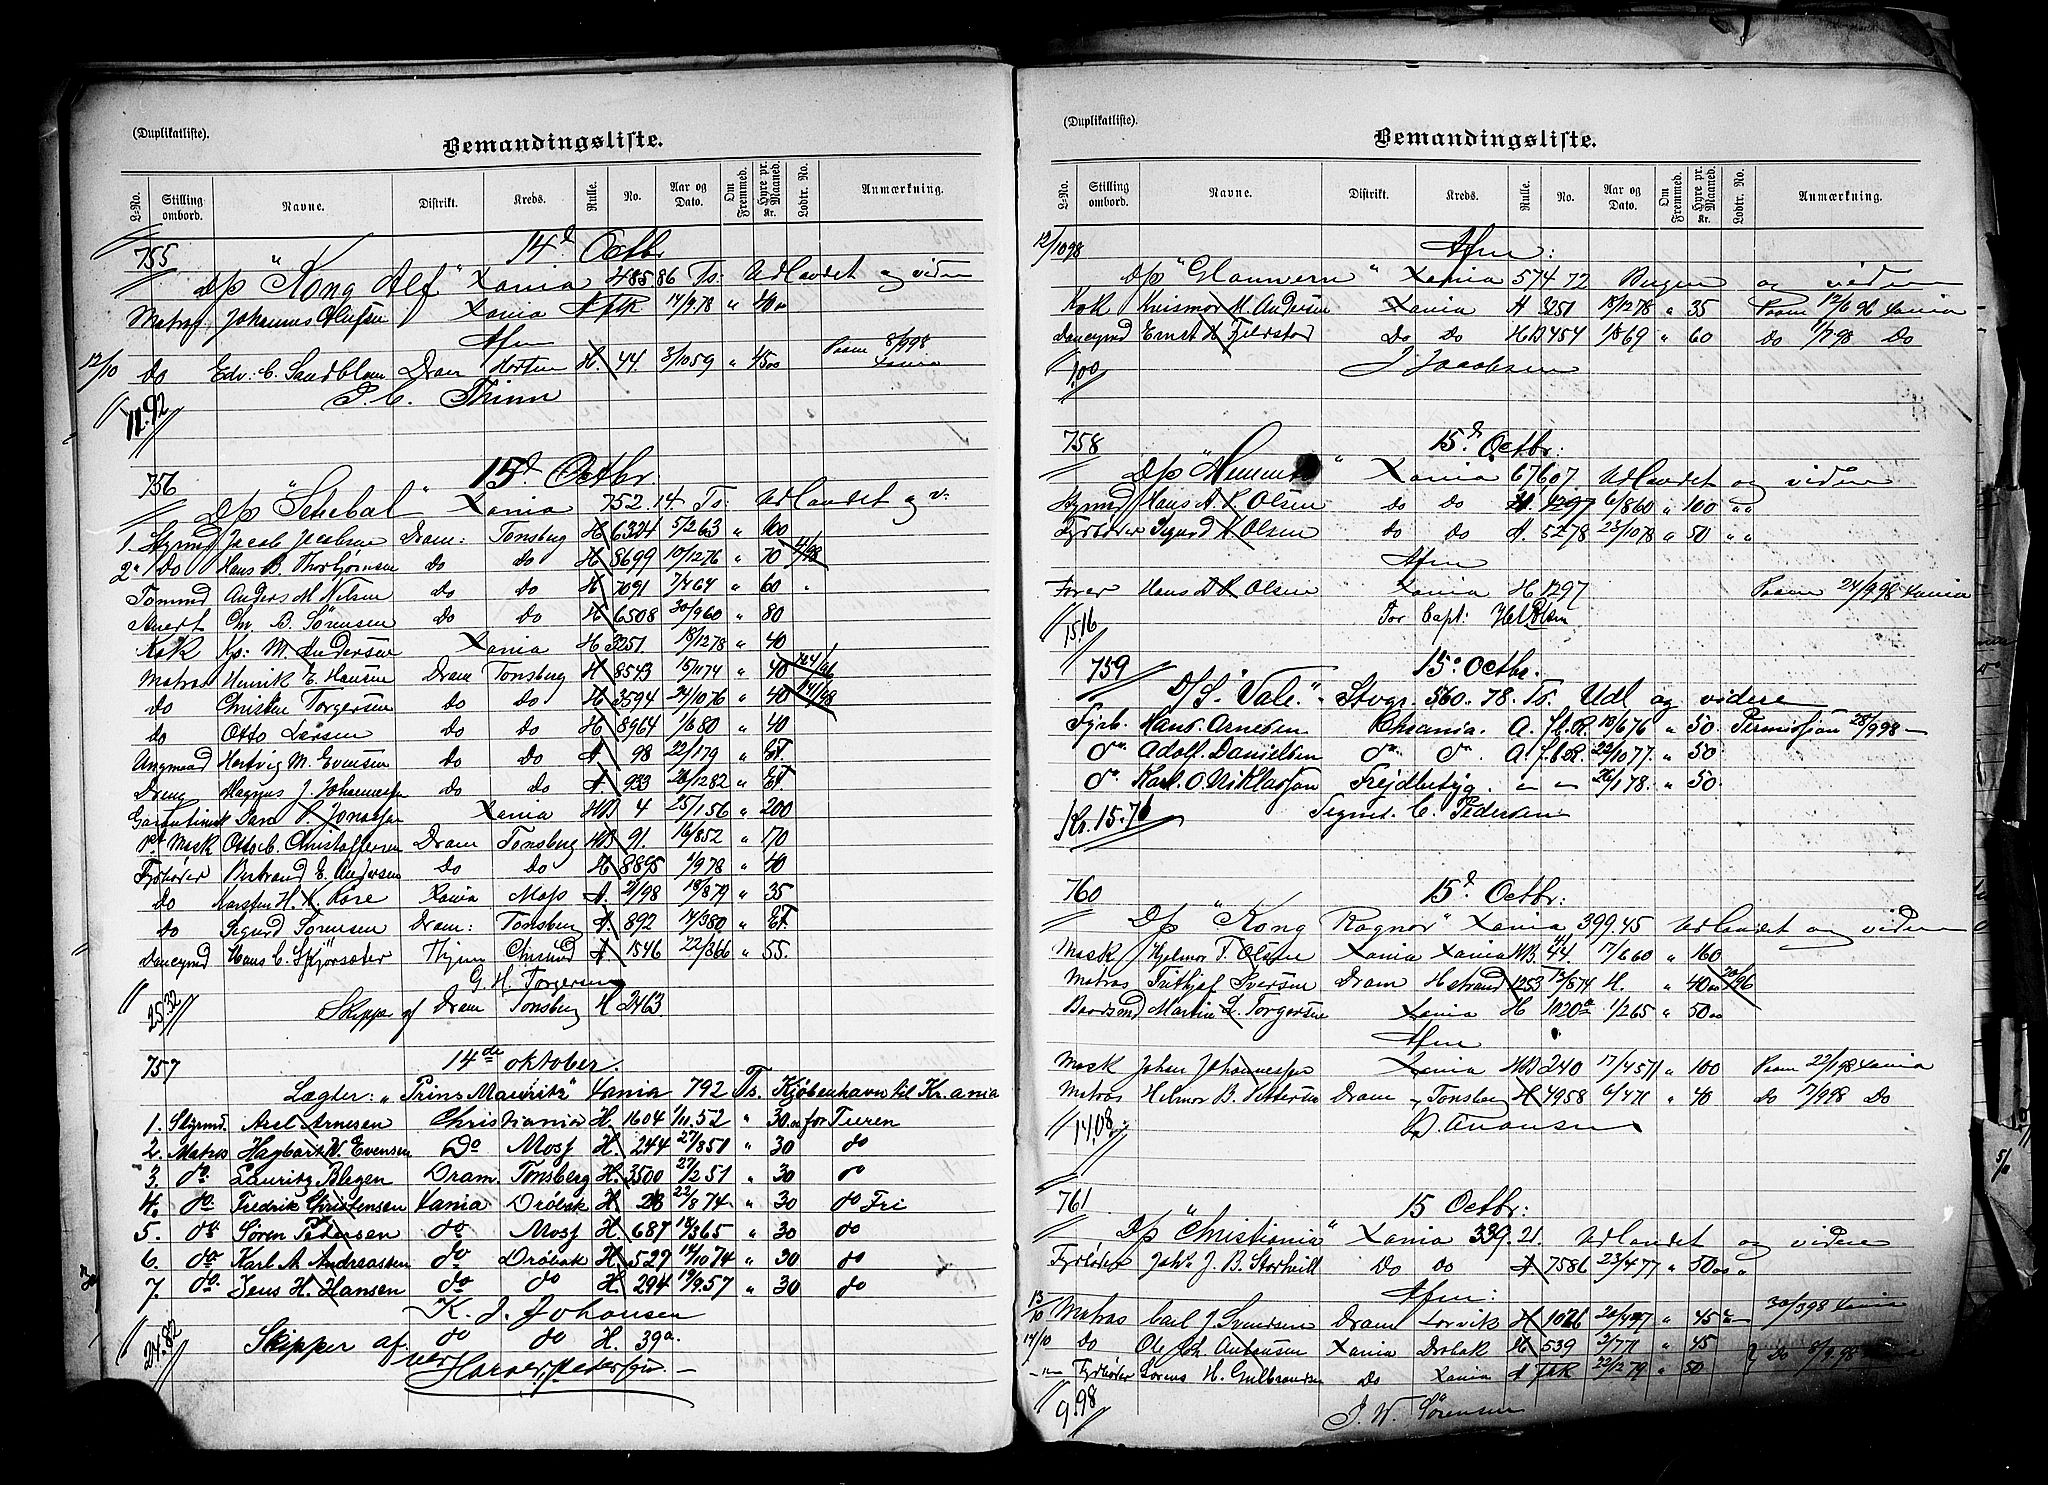 (Duplikatliste).
Bemandingsliste.
L-No. Stilling ombord. Navne. Distrikt. Krebs. Rulle. No. Aar og Dato. Om Fremmed. Hyre pr. Maaned. Kr. Lodtr. No. Anmærkning.
755 14d Octbr
D/p "Kong Alf" Xania 485 86 Ts: Udlandet og videre
Matros Johannes Olufsen Xania A fbR 14/9.78 "
Afm
12/10 do Edv. C. Sandblom Dram Horten H. 44. 3/10 59 " 4500 Paam 8/9 98 Xania
11.92 J. C. Thinn
756 15d Octbr
D/p "Setebal" Xania 752.14. Ts: Udlandet og v:
1. Stymd Jacob Jacobsen Dram: Tonsberg H 6324 5/2 63 " 100
2" do Hans B. Thorbjørnsen do do H 8699 10/12 76 " 70
Tømmd Anders M Nilsen do do H 7091 7/4 64 " 60
Stuert Chr. B. Sørensen do do H 6508 30/9 60 " 80
Kok Kr: M. Andersen Xania H 3251. 18/12 78 " 40
Matros Henrik E. Hansen Dram Tonsberg H 8543 15/11 74 " 40
do Christen Torgersen do do H 3594 24/10 76 " 40
do Otto Larsen do do H 8964 1/6 80 " 40
Angmand Hertvig M. Evensen do do A 98 22/1 79 " Et
Dreng Magnus J. Johannessen do do A 933 26/12 82 " Et
Xania HB 4 25/1 56 " 200
Mask Otto C. Christoffersen Dram Tonsberg HB 91. 16/8 52 " 170
Fyrbøder Bertrand E. Andersen do do H 8895 1/9 78 " 40
do Karsten H. K. Røre Xania Moss A. 2/98 18/8 79 " 35
do Sigurd Sørensen Dram: Tonsberg A 892 14/3 80 " Et
Donkeymd Hans C. Chrsund A 1546 22/3 66 " 55.
G. H. Torgersen
25.32 Skipper af Dram Tonsberg H 2463
757 14de oktober.
Lægter: "Prins Mauritz" Xania 792 Ts. Kjöbenhavn til Kr.ania
1. Styrmd. Axel Arnesen Christiania H. 1604 1/11.52 " 30.00 for Turen
2. Matros Hagbart W. Evensen Do Moss H. 244 27/8 51 " 30 do
3. do Lauritz Blegen Dram. Tonsberg H. 3500 27/2 51 " 30 do
4. do Fredrik Christensen Xania Dröbak H 28 22/8 74 " 30 do Fri
5. do Sören Pedersen do Mosf H 687 18/3 65 " 30 do
6. do Karl A. Andreassen do Dröbak H 527 14/10 74 " 30 do
7. do Jens H. Hansen do do H. 294 19/9.57 " 30 do
K. J. Johansen
24.82 Skipper af. do do H. 39a.
(Duplikatliste).
Bemandingsliste.
L-No. Stilling ombord. Navne. Distrikt. Krebs. Rulle. No. Aar og Dato. Om Fremmed. Hyre pr. Maaned. Kr. Lodtr. No. Anmærkning.
12/10 98 Afm:
D/p "Glamvern" Xania 574 72 og videre
Kok M. Andersen Xania H 3251 18/12 78 " 35 Paam 12/6 96 Xania
Donkeymd Ernst A Fjerstad Do Do HB 454 1/8 69 " 60 Do 11/7 98 Do
1.00 J Jacobsen
758 15d Octbr:
D/p " " Xania 676 07 Udlandet og videre
Stymd Hans A. P. Olsen do do H. 1297 6/8 60 " 100 " "
Fyrbøder Sigurd K Olsen do do A. 5278 23/10 78 " 50 " "
Afm
Fører Hans A P. Olsen Xania H 1297 Paam 24/9 98 Xania
15.16 For Capt:
759 15. Octbr.
D/S. "Vale". Stvgr. 560.78. Ts. Udl og videre
Fyrb. Hans Arnesen Chrania. A. f.b.R. 18/6 76 " 50 Permission 28/9 98 -
do Adolf Danielsen do do A. f.b.R. 22/10 77. " 50
do Karl. O. Niklassen - - 26/1 78. " 50
Kr. 15.76 Segner. C. Pedersen
760 15d Octbr:
D/p "Kong Ragnar" Xania 399.45 Udlandet og videre
Mask Hjelmar T. Olsen Xania Xania HB. 44. 17/6 60 " 160
Matros Frithjof Iversen Dram Hstrand 1253 13/8 74 H. " 4000
Baadsmd Martin L. Torgersen Xania H 1020a 1/2 65 " 5000
Afm
Mask Johan Johannessen Xania HB 240 17/4 57 " 100 Paam 22/1 98 Xania
Matros Helmer B. Pettersen Dram Tonsberg H 4958 6/4 71 " 40 Do 7/9 98 Do
14.08
761 15 Octbr:
D/p "Christiania" Xania 339.21. Udlandet og videre
Fyrbøder Johs J. B. Storhvill Do Do A 7586 23/4 77 " 5000 "
Afm:
13/10 Matros Carl J. Svendsen Dram Larvik H 1026 " 45 30/3 98 Xania
14/10 do Ole Ch. Antonsen Xania Drobak H 539 2/7 71 " 45
-"- Fyrbøder Lorens H. Gulbrandsen Do Xania A fbR 22/12 79 " 50 } Do 8/9.98 Xania
9.98 J. W. Sørensen